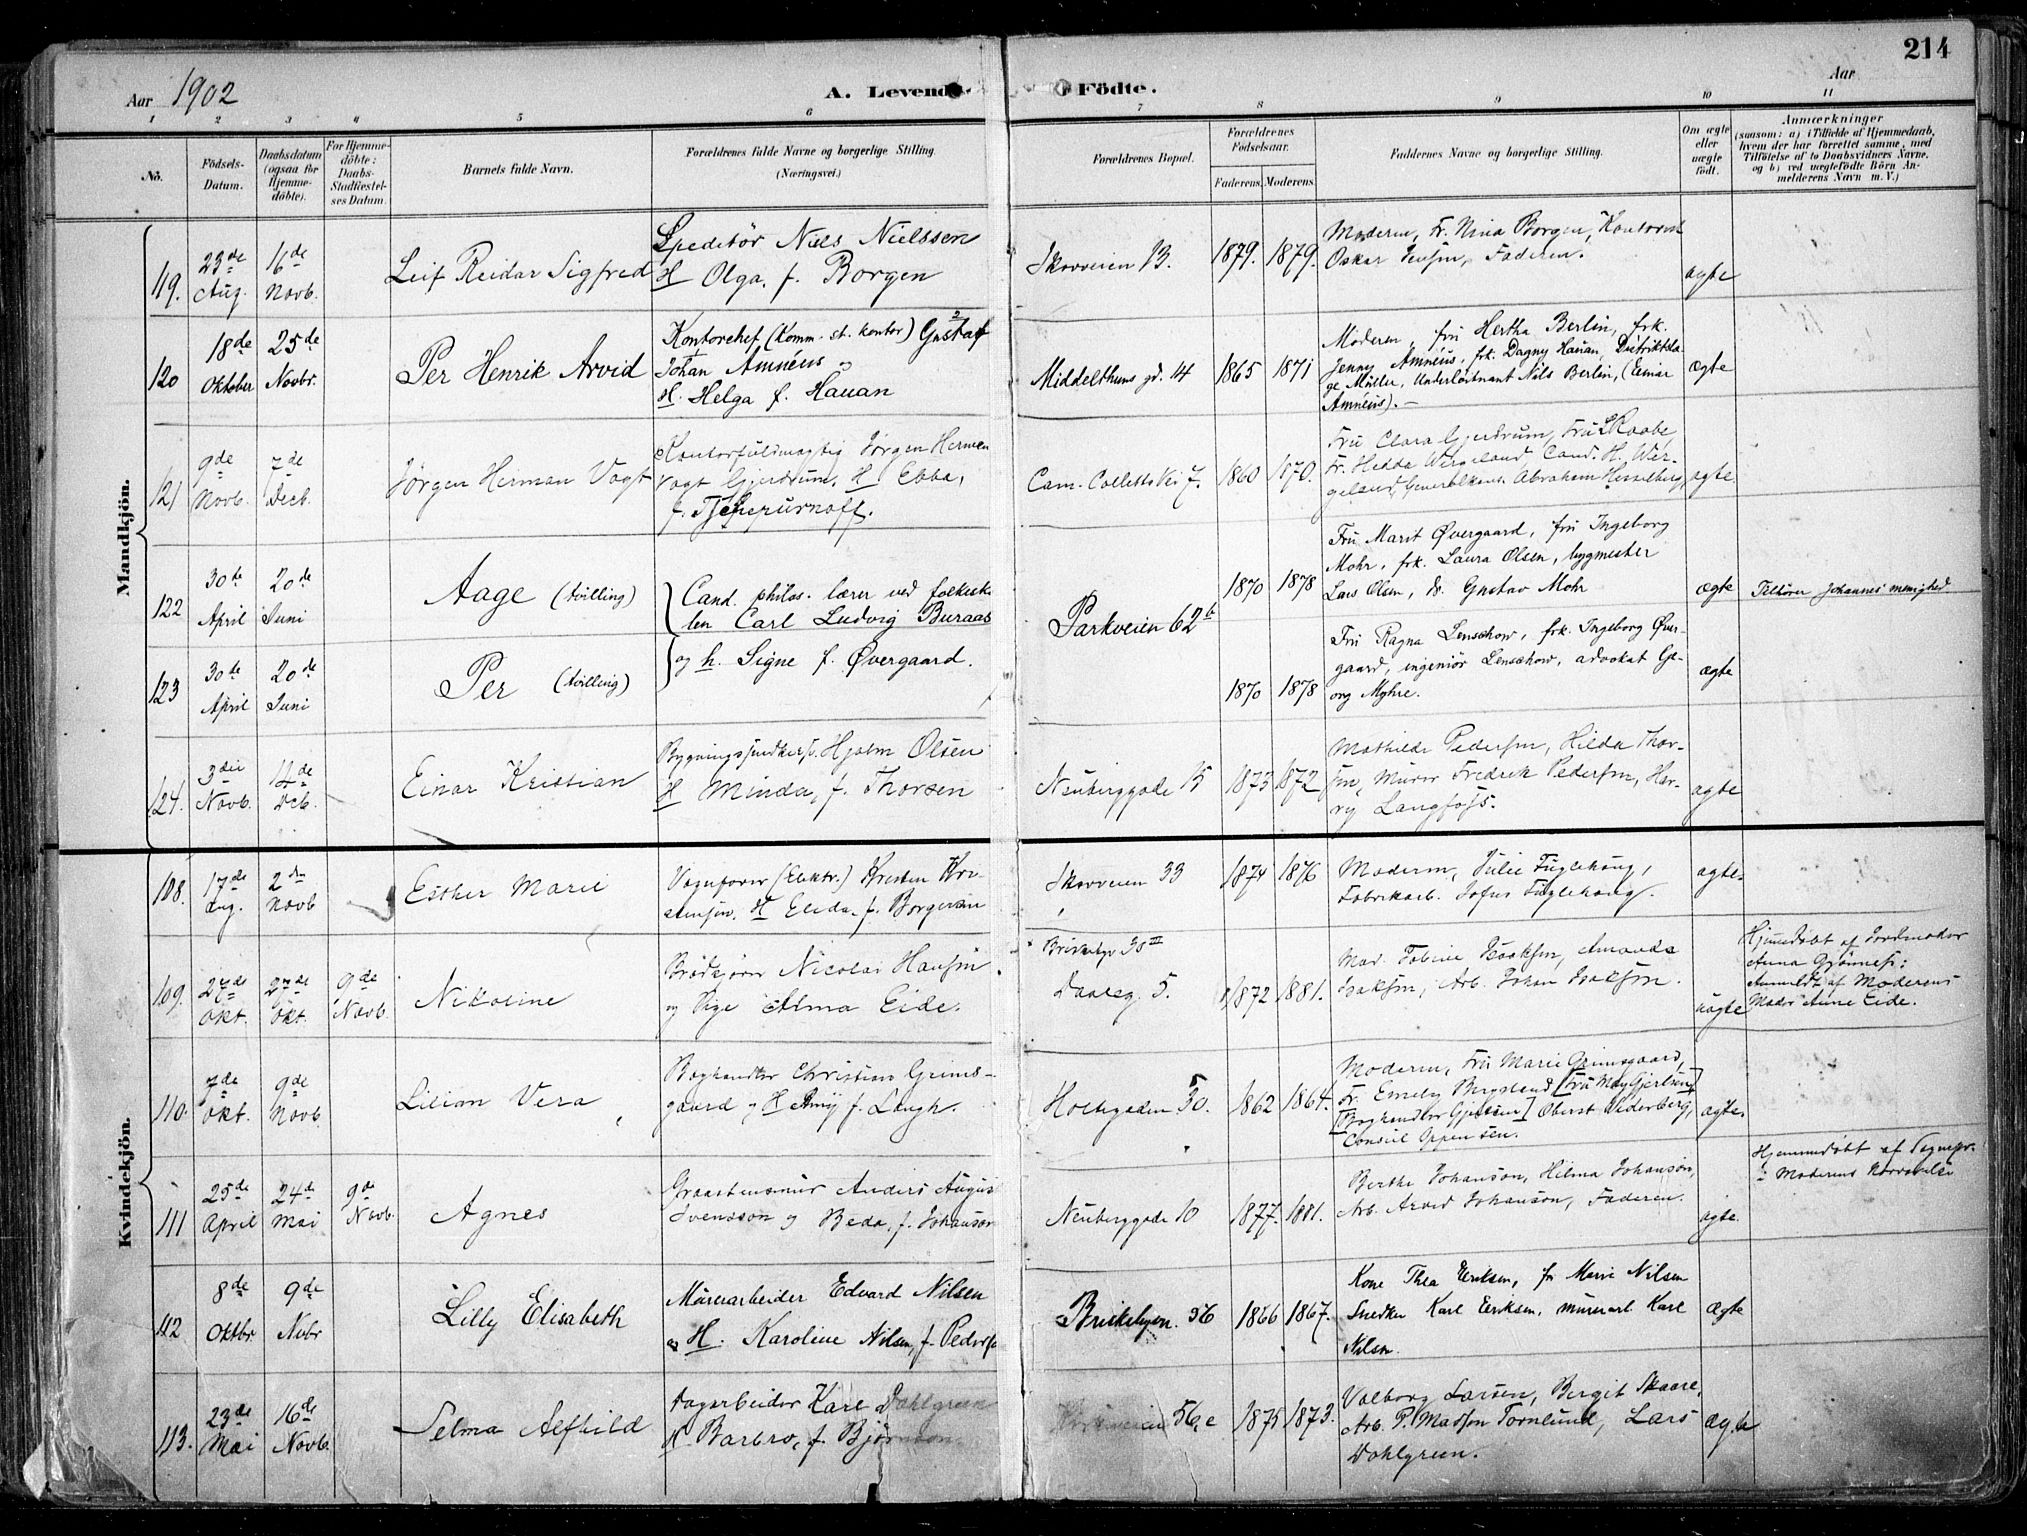 214
Aar 1902
A. Levende Födte.
Aar
1 2 3 4 5 6 7 8 9 10 11
No.
Födsels-
Datum.
Daabsdatum
(ogsaa for
Hjemme-
döbte).
For Hjemme-
döbte:
Daabs-
Stadfæstel-
ses Datum.
Barnets fulde Navn.
Forældrenes fulde Navne og borgerlige Stilling.
(Næringsvei.)
Forældrenes Bopæl.
Forældrenes
Födselsaar.
Faderens. Moderens.
Faddernes Navne og borgerlige Stilling.
Om ægte
eller
uægte
födt.
Anmærkninger
(saasom: a) i Tilfælde af Hjemmedaab,
hvem der har forrettet samme, med
Tilföielse af to Daabsvidners Navne.
og b) ved uægtefödte Börn An-
melderens Navn m. V.)
Mandkjön.
119.
23de
Aug.
16de
Novb.
Leif Reidar Sigfred
Speditør Niels Nielssen
H Olga, f. Borgen
Skovveien 13.
1879. 1879.
Moderen, Fr. Nina Borgen, Kontorist
Oskar Jensen, Faderen.
ægte
120
18de
Oktober
25de
Novbr.
Per Henrik Arvid
Kontorchef (Komm. st. kontor) Gustaf
Johan Amnéus
H. Helga f. Hauan
Middelthuns gd. 14
1865 1871
Moderen, fru Hertha Berlin, frk.
Jenny Amnéus, frk. Dagny Hauan, Distriktslæ-
ge Müller, Underløitnant Nils Berlin, (Einar
Amnéus). —
ægte
121
9de
Novb.
7de
Decb.
Jørgen Herman Vogt
Kontorfuldmægtig Jørgen Herman
Vogt Gjerdrum, H Ebba,
f. Tschepurnoff.
Cam. Colletts Vei 7.
1860 1870.
Fru Clara Gjerdrum, Fru Raabe,
Fr. Hedda Wergeland, Cand. H. Wer-
geland, Generalkons. Abraham Hesselberg
ægte
122
30te
April
20de
Juni
Aage (tvilling)
Cand. philos. lærer ved folkesko
len Carl Ludvig Buraas
og h. Signe f. Øvergaard.
Parkveien 62b
1870 1878
Fru Marit Øvergaard, fru Ingeborg
Mohr, frk. Laura Olsen, bygmester
Lars Olsen, dr. Gustav Mohr
ægte
Tilhører Johannes menighed.
123
30te
April
20de
Juni
Per (tvilling)
1870 1878
Fru Ragna Lenschow, frk. Ingeborg Øver-
gaard, ingeniør Lenschow, advokat Ge-
org Myhre.
ægte
124.
3die
Novb.
14de
Dcb.
Einar Kristian
Bygningssnedker Hjalm Olsen
H Minda, f. Thorsen
Neuberggade 15
1873 1872
Mathilde Pedersen, Hilda Thor-
sen, Murer Fredrik Pedersen, Har-
ry Langfoss.
ægte
Kvindekjön.
108.
17de
Aug.
2den
Novb
Esther Marie
Vognfører (Elektr.) Kristen Kri-
stensen, H Elida, f. Borgersen
Skovveien 33
1874 1876
Moderen, Julie Fuglehaug,
Fabrikarb. Sofus Fuglehaug.
ægte.
109.
27de
Okt.
27de
Okt.
9de
Novb.
Nikoline
Brødkjører Nicolai Hansen
og Pige Alma Eide.
Briskebyv 38 III
Daaleg. 5.
1872 1881.
Mad. Tobine Isaksen, Amanda
Isaksen, Arb. Johan Isaksen.
uægte
Hjemmedøbt af Jordmoder
Anna Gjønnes;
Anmeldt af Moderens
Moder Anne Eide.
110.
7de
Okt.
9de
Novb.
Lilian Vera
Boghandler Christian Grims-
gaard og H Amy f. Laugh.
Holtegaden 30.
1862 1864.
Moderen, Fru Marie Grimsgaard,
Fr. Emely Bergsland [Fru May Gjertsen]
[Boghandler Gjertsen] Oberst Nederberg,
Consul Oppen sen.
ægte.
111
25de
April
24de
Mai
9de
Novb.
Agnes
Graastensmur Anders August
Svensson og Beda, f. Johanson
Neuberggade 10
1877. 1881.
Berthe Johanson, Hilma Johanson,
Arb. Arvid Johanson, Faderen.
ægte.
Hjemmedøbt af
i Moderens Nærværelse
112
8de
Oktbr
9de
Novbr
Lilly Elisabeth
Murerarbeider Edvard Nilsen
og H. Karoline Nilsen, f. Peders
Briskebyen. 36
1866 1867.
Kone Thea Eriksen, fr Marie Nilsen
Snedker Karl Eriksen, murerarb. Karl
Nilsen.
Ægte
113.
23de
Mai
16de
Novb.
Selma Alfhild
Dagarbeider Karl Dahlgreen
H Barbro, f. Bjørnson
56, c
1875 1873.
Valborg Larsen, Bergit Skaare,
Arb. P. Madsen Tornlund, Lars
Dahlgreen.
ægte